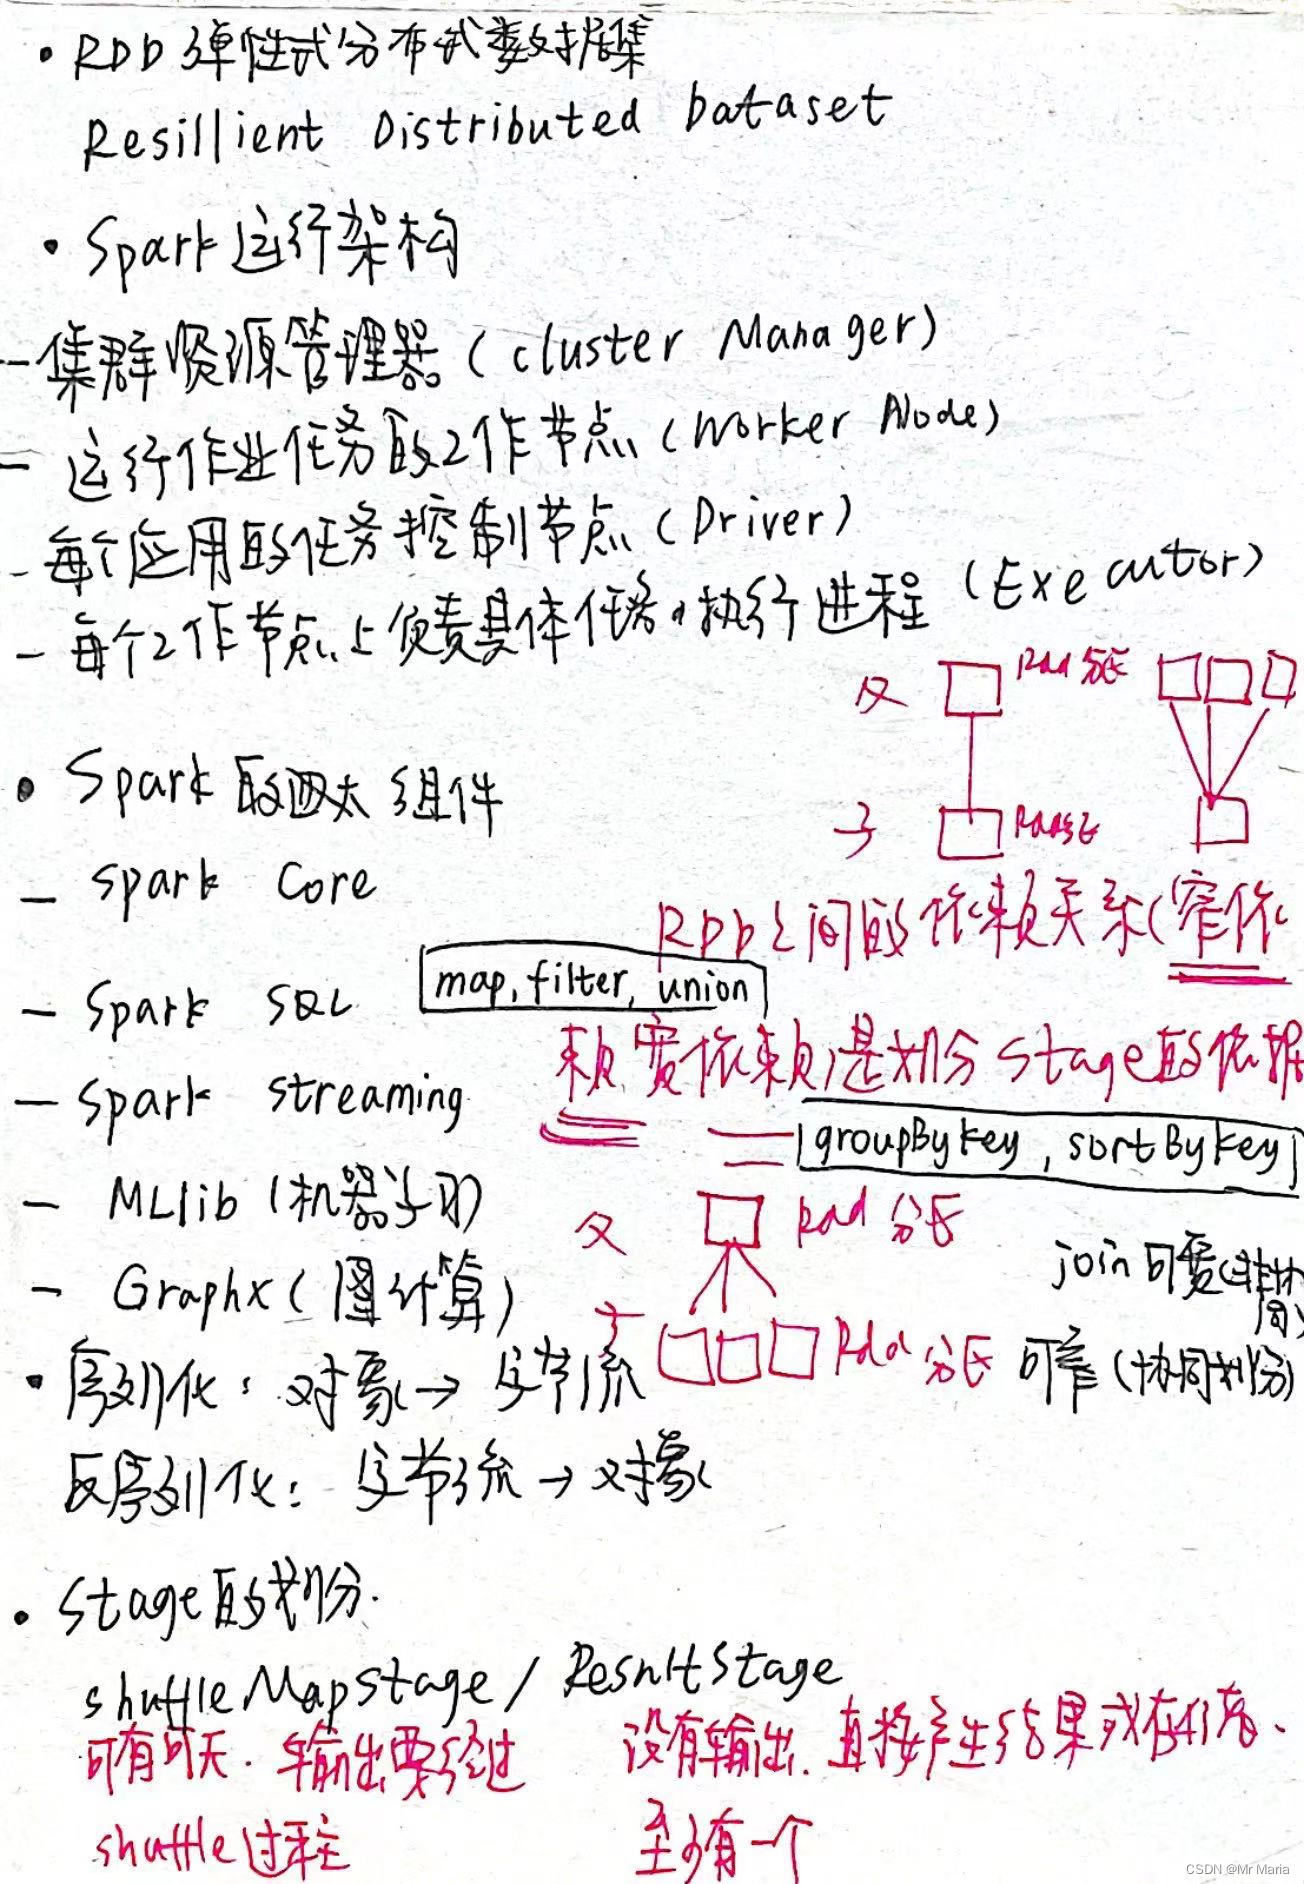 • RDD 弹性式分布式数据集
Resillient Distributed Dataset
• Spark运行架构
-集群资源管理器(cluster Manager)
- 运行作业任务的工作节点(Worker Node)
- 每个应用的任务控制节点(Driver)
- 每个工作节点上负责具体任务的执行进程(Executor)
父 Rdd 分区
子 Rdd分区
• Spark 的四大组件
- Spark Core
RDD之间的依赖关系(窄依
map, filter, union
- Spark SQL
赖 宽依赖)是划分 Stage的依据
- Spark streaming
groupByKey, sortByKey
- MLlib (机器学习)
父 Rdd 分区
join 可宽(非协同)
- GraphX(图计算)
子 Rdd 分区
可窄(协同划分)
• 序列化: 对象→ 字节流
反序列化: 字节流→对象
• Stage的划分.
shuffleMapStage / ResultStage
可有可无. 输出要经过
没有输出. 直接产生结果或存储.
shuffle过程
至少有一个
CSDN @Mr Maria